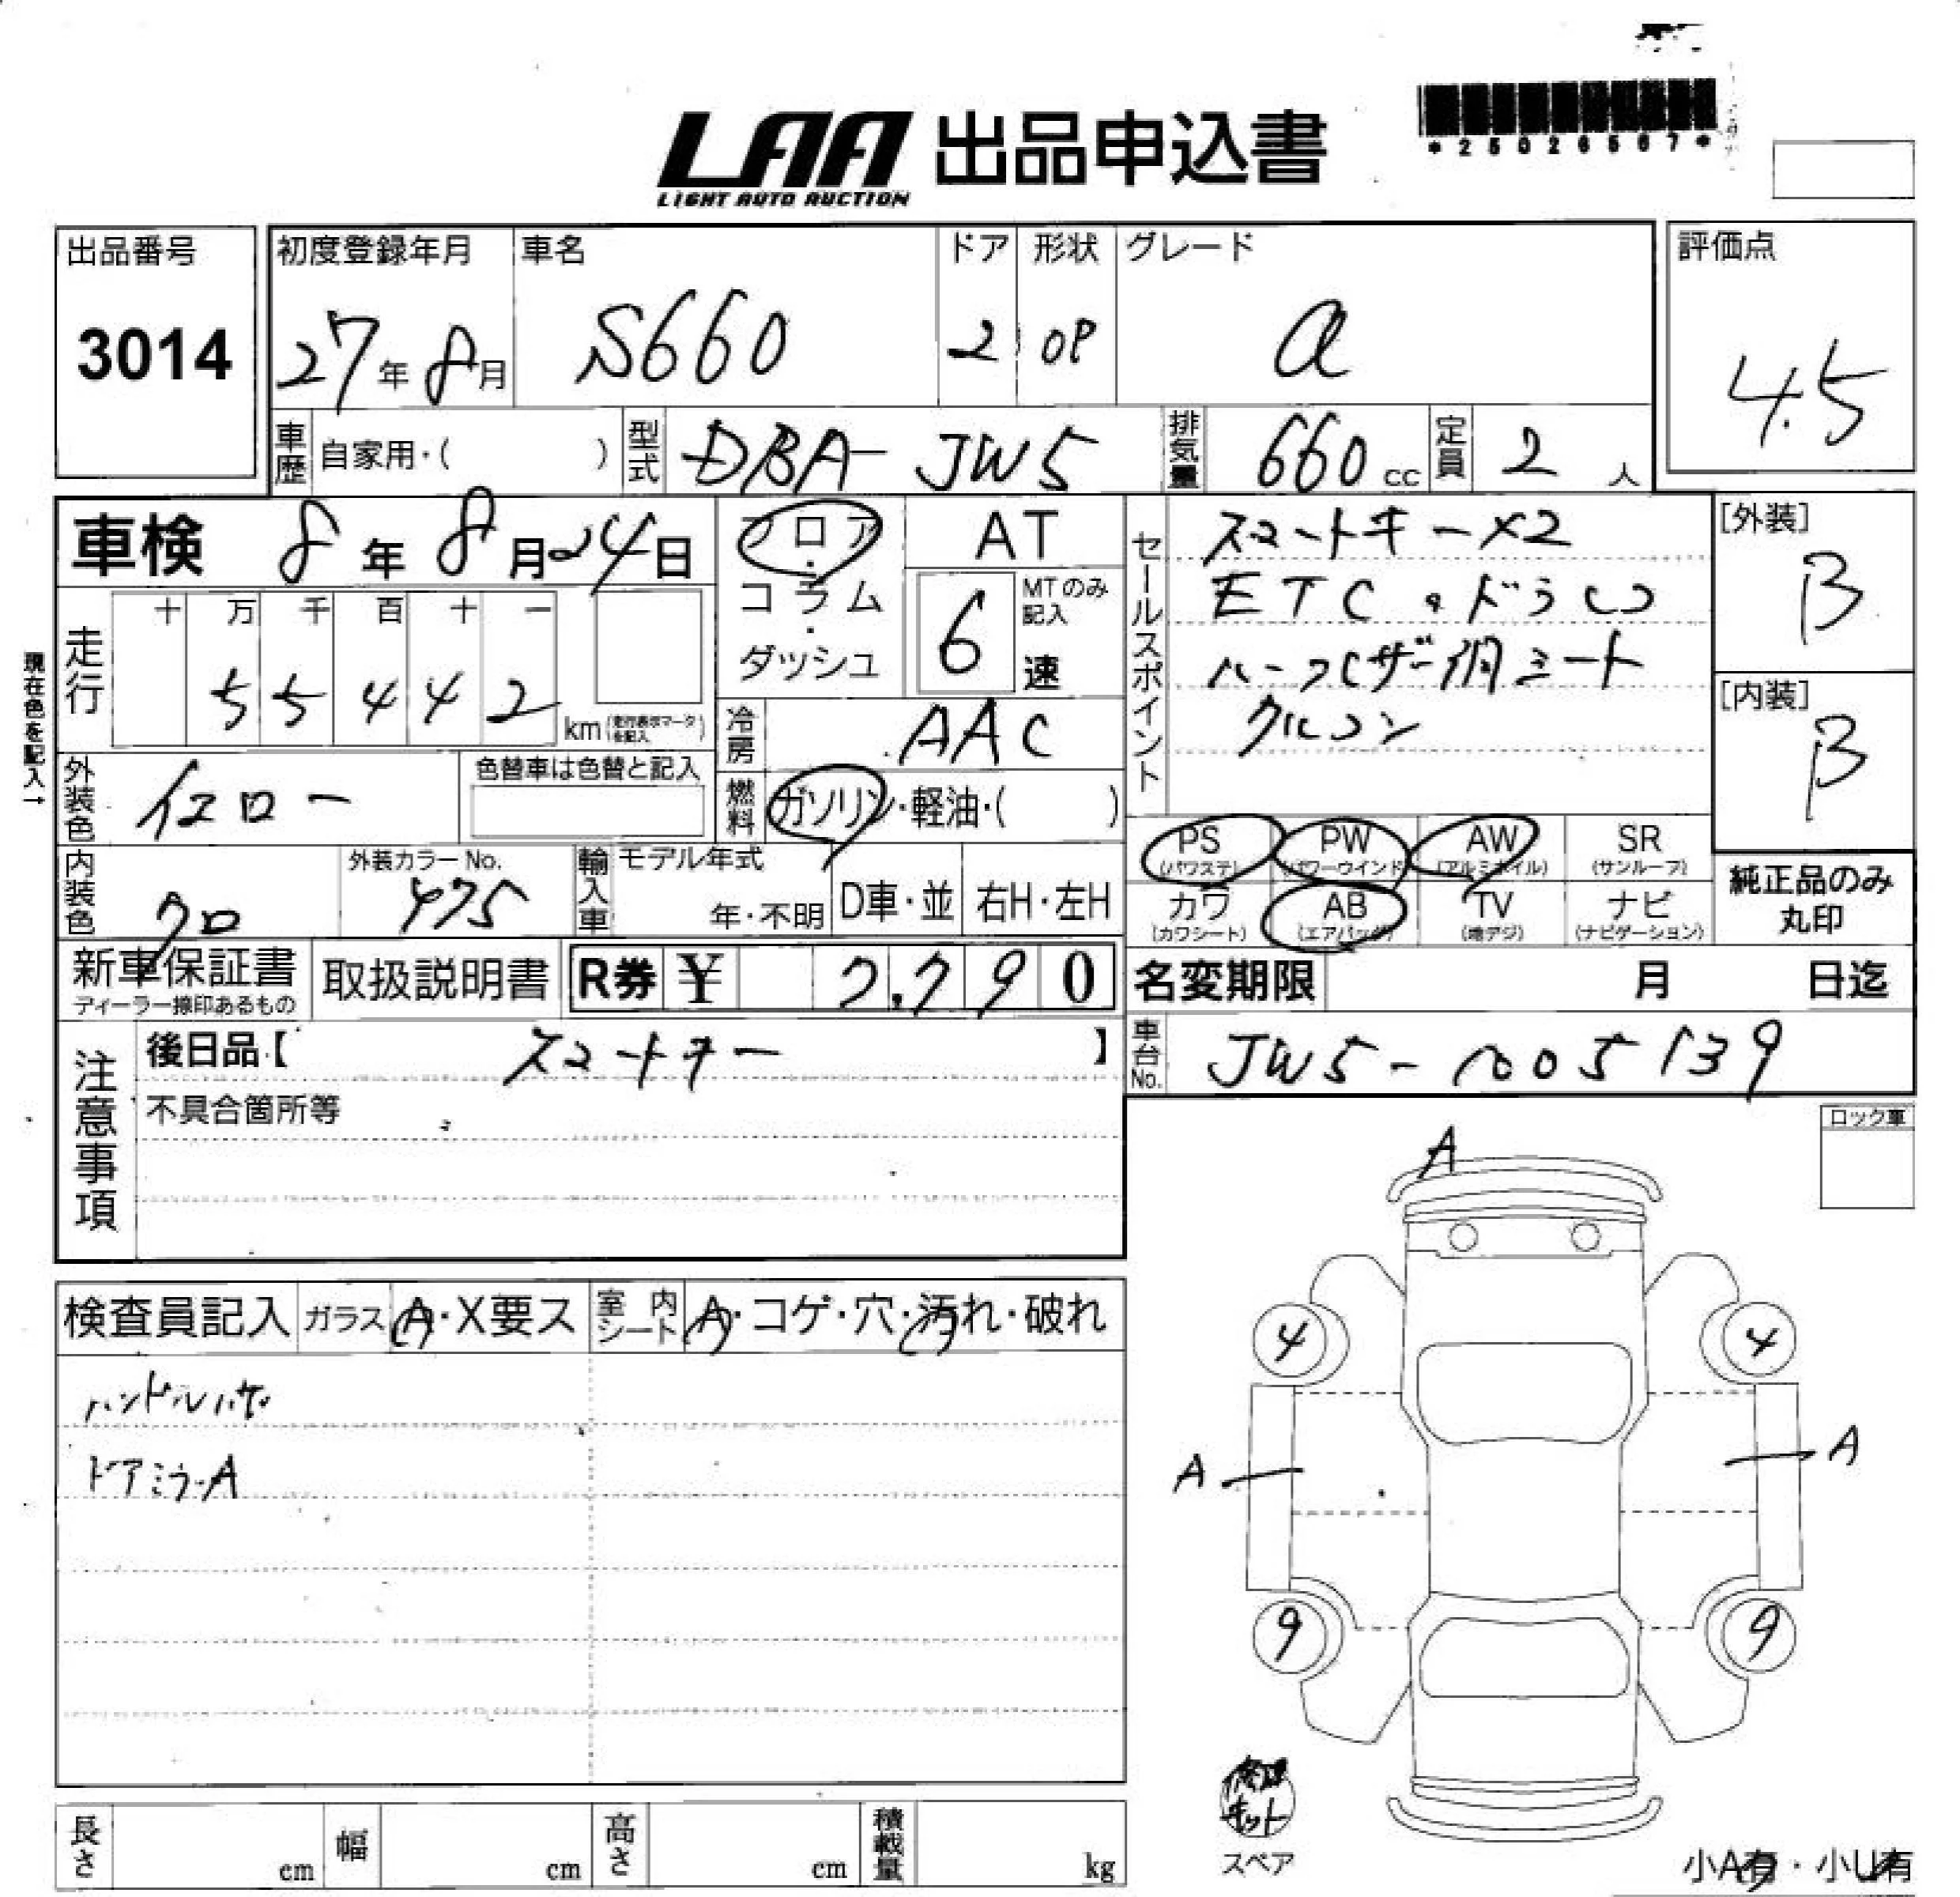 LAA 出品申込書
LIGHT AUTO AUCTION
*25026567*
出品番号
3014
初度登録年月 車名 ドア 形状 グレード
27年8月 S660 2 OP α
評価点
4.5
車歴 自家用・( ) 型式 DBA-JW5 排気量 660cc 定員 2人
車検 8年8月24日
フロア・コラム・ダッシュ
AT
MTのみ記入
6速
走行 十万千百十一
55442 km
(走行表示マークを記入)
現在色を記入→
冷房 AAC
外装色 イエロー
色替車は色替と記入
燃料 ガソリン・軽油・( )
内装色 クロ
外装カラーNo. Y75
輸入車 モデル年式
年・不明 D車・並 右H・左H
セールスポイント
スマートキー×2
ETC・ドラレコ
ハーフレザー調シート
クルコン
[外装]
B
[内装]
B
PS (パワステ) PW (パワーウインド) AW (アルミホイル) SR (サンルーフ)
カワ (カワシート) AB (エアバッグ) TV (地デジ) ナビ (ナビゲーション)
純正品のみ
丸印
新車保証書
ディーラー捺印あるもの
取扱説明書
R券 ¥ 7,790
名変期限 月 日迄
車台No. JW5-1005139
注意事項
後日品【 スマートキー 】
不具合箇所等
ロック車
検査員記入 ガラス A・X要ス 室内シート A・コゲ・穴・汚れ・破れ
ハンドルハゲ
ドアミラーA
A
4 4
A A
9 9
修理
キット
スペア
小A有・小U有
長さ cm 幅 cm 高さ cm 積載量 kg